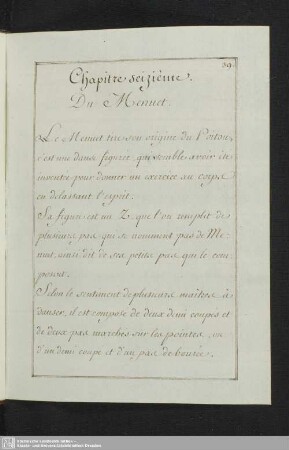 39.
Chapitre seizième.
Du Menuet.
Le Menuet tire son origine du Poitou,
c'est une danse figurée qui semble avoir été
inventée pour donner un exercice au corps
en délassant l'esprit.
Sa figure est un Z, que l'on remplit de
plusieurs pas qui se nomment pas de Me-
nuet, ainsi dit de ses petits pas qui le com-
posent.
Selon le sentiment de plusieurs maîtres à
danser, il est composé de deux demi coupés et
de deux pas marchés sur les pointes, ou
d'un demi coupé et d'un pas de bourée.